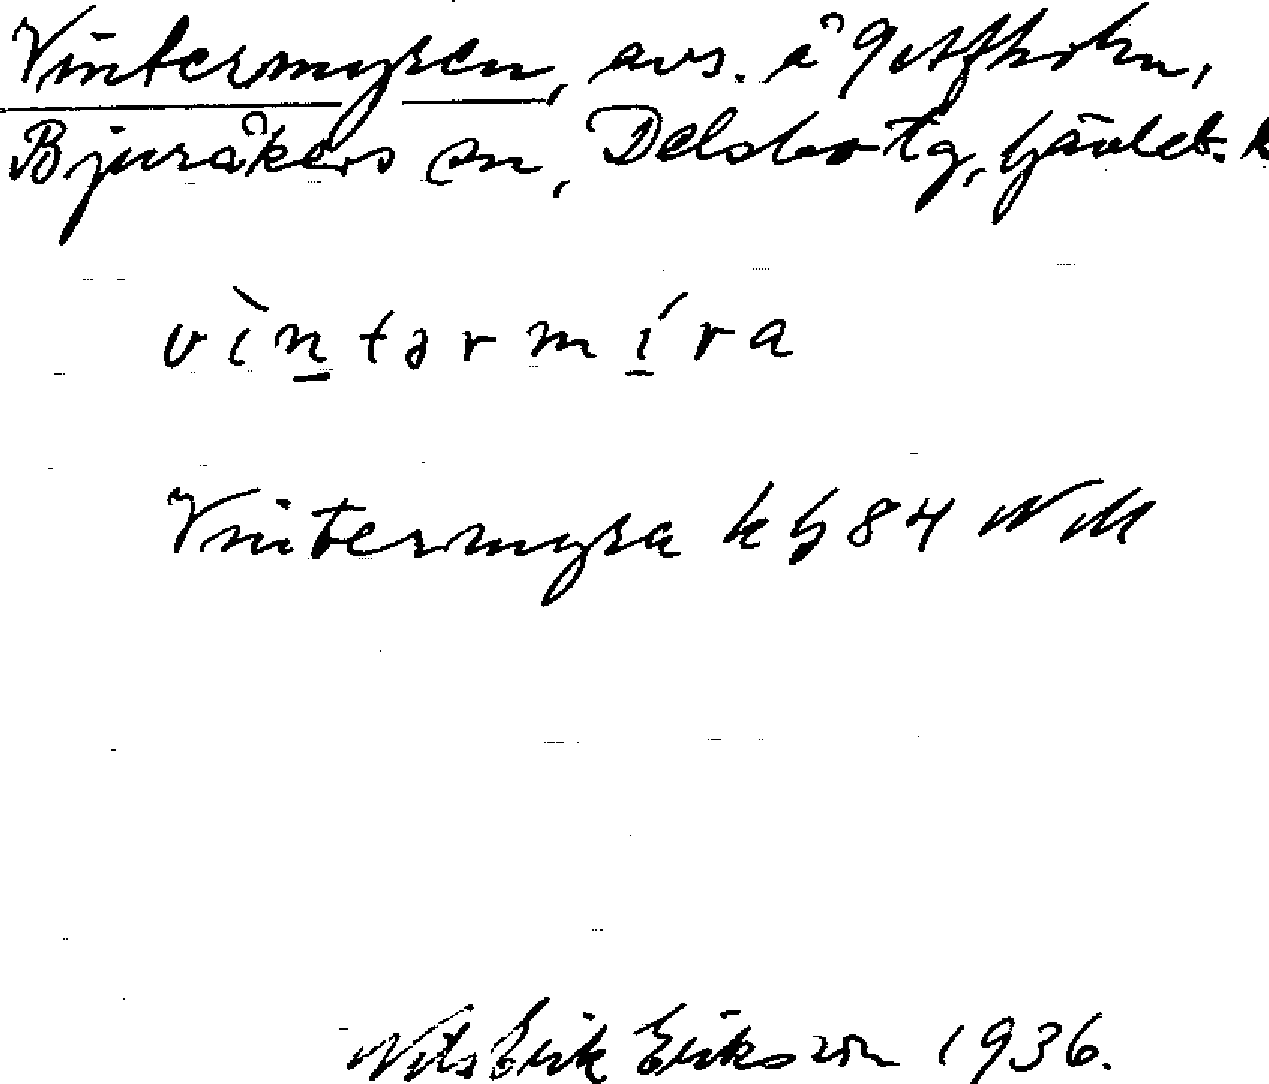 Vintermyren, avs. å
Bjuråkers sn, Delsbo tg, Gävleb. l
vìntərmíra
Vintermyra k g 84 NM
Nils Erik Eriksson 1936.